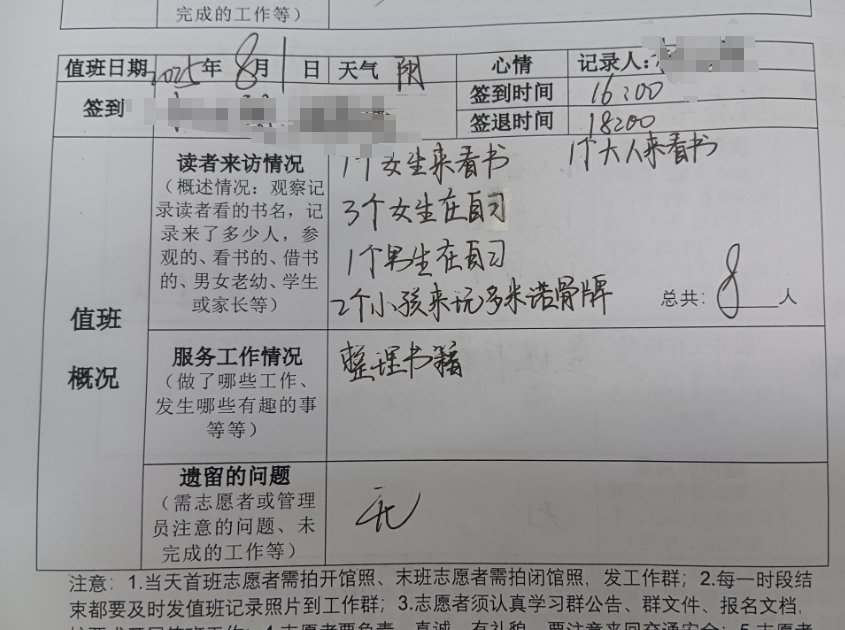 完成的工作等）
值班日期 2025年8月1日 天气 阴 心情 记录人：
签到 签到时间 16:00
签退时间 18:00
值班
概况
读者来访情况
（概述情况：观察记
录读者看的书名，记
录来了多少人，参
观的、看书的、借书
的、男女老幼、学生
或家长等）
1个女生来看书 1个大人来看书
3个女生在自习
1个男生在自习
2个小孩来玩多米诺骨牌
总共：8人
服务工作情况
（做了哪些工作、
发生哪些有趣的事
等等）
整理书籍
遗留的问题
（需志愿者或管理
员注意的问题、未
完成的工作等）
无
注意：1.当天首班志愿者需拍开馆照、末班志愿者需拍闭馆照，发工作群；2.每一时段结
束都要及时发值班记录照片到工作群；3.志愿者须认真学习群公告、群文件、报名文档，